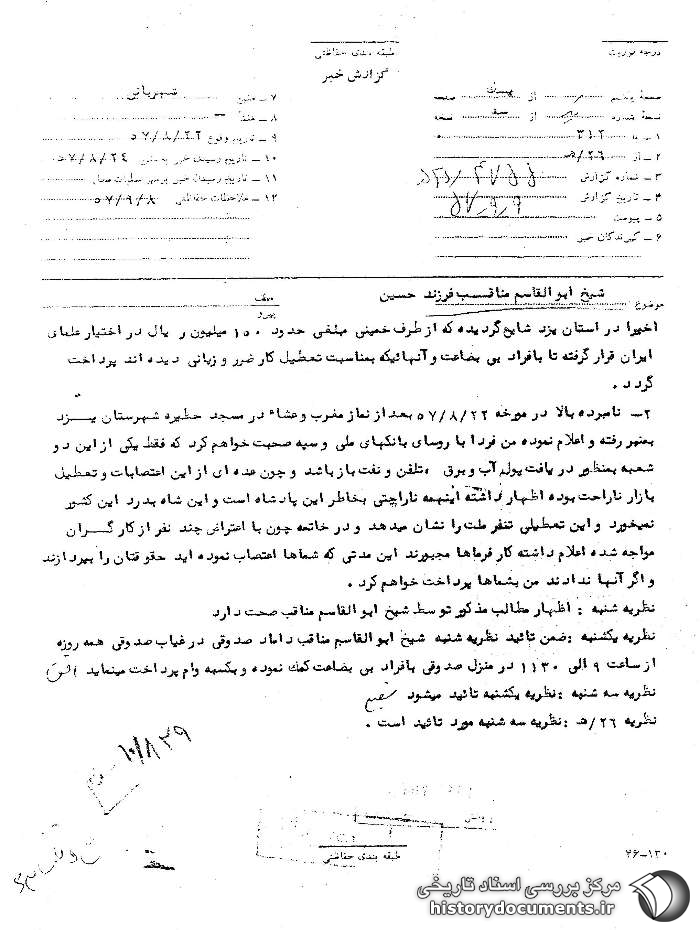 درجه فوریت
طبقه بندی حفاظتی
گزارش خبر
صفحهٔ یکم از صفحه
نسخهٔ شماره از نسخه
۱ – به ۳۱۲
۲ – از ۲۶/ه
۳ – شماره گزارش
۴ – تاریخ گزارش
۵ – پیوست
۶ – گیرندگان خبر
۷ – منبع شهربانی
۸ – منشأ –
۹ – تاریخ وقوع ۵۷/۸/۲۲
۱۰ – تاریخ رسیدن خبر به منبع ۵۷/۸/۲۴
۱۱ – تاریخ رسیدن خبر برهبر عملیات محل
۱۲ – ملاحظات حفاظتی ۵۷/۹/۸
موضوع شیخ ابوالقاسم مناقب فرزند حسین
عطف
پیرو
اخیرا در استان یزد شایع گردیده که از طرف خمینی مبلغی حدود ۱۵۰ میلیون ریال در اختیار علمای
ایران قرار گرفته تا بافراد بی بضاعت و آنهائیکه بمناسبت تعطیل کار ضرر و زیانی دیده اند پرداخت
گردد .
۲– نامبرده بالا در مورخه ۵۷/۸/۲۲ بعد از نماز مغرب و عشاء در مسجد حظیره شهرستان یزد
بمنبر رفته و اعلام نموده من فردا با روسای بانکهای ملی و سپه صحبت خواهم کرد که فقط یکی از این دو
شعبه بمنظور دریافت پول آب و برق ، تلفن و نفت باز باشد و چون عده ای از این اعتصابات و تعطیل
بازار ناراحت بوده اظهار داشته اینهمه ناراحتی بخاطر این پادشاه است و این شاه بدرد این کشور
نمیخورد و این تعطیلی تنفر ملت را نشان میدهد و در خاتمه چون با اعتراض چند نفر از کارگران
مواجه شده اعلام داشته کارفرماها مجبورند این مدتی که شماها اعتصاب نموده اید حقوقتان را بپردازند
و اگر آنها ندادند من بشماها پرداخت خواهم کرد .
نظریه شنبه : اظهار مطالب مذکور توسط شیخ ابوالقاسم مناقب صحت دارد
نظریه یکشنبه : ضمن تائید نظریه شنبه شیخ ابوالقاسم مناقب داماد صدوقی در غیاب صدوقی همه روزه
از ساعت ۹ الی ۱۱۳۰ در منزل صدوقی بافراد بی بضاعت کمک نموده و بکسبه وام پرداخت مینماید
نظریه سه شنبه : نظریه یکشنبه تائید میشود
نظریه ۲۶/ه : نظریه سه شنبه مورد تائید است .
طبقه بندی حفاظتی
۴۶–۱۳۰
مرکز بررسی اسناد تاریخی
historydocuments.ir